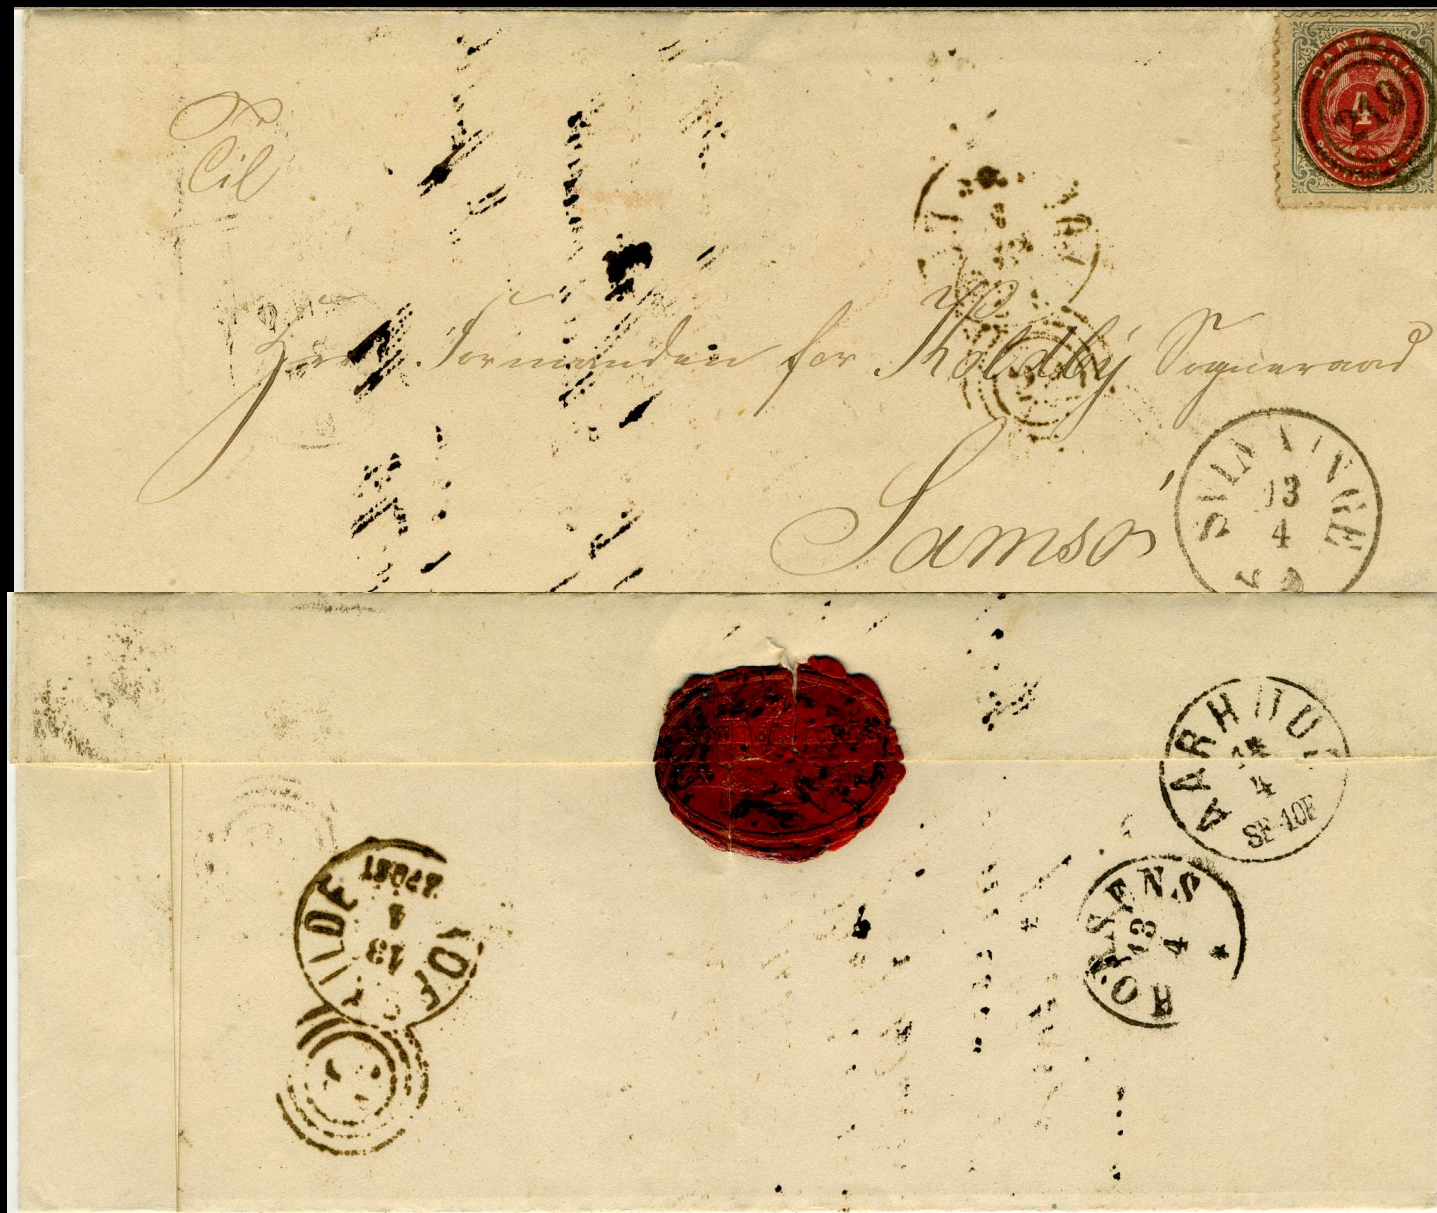 DANMARK
4
219
Til
Herr Formanden for Koldby Sogneraad
Samsö
SVINNINGE
13
4
AARHUUS
14
4
SP 10E
HORSENS
13
4
13
4